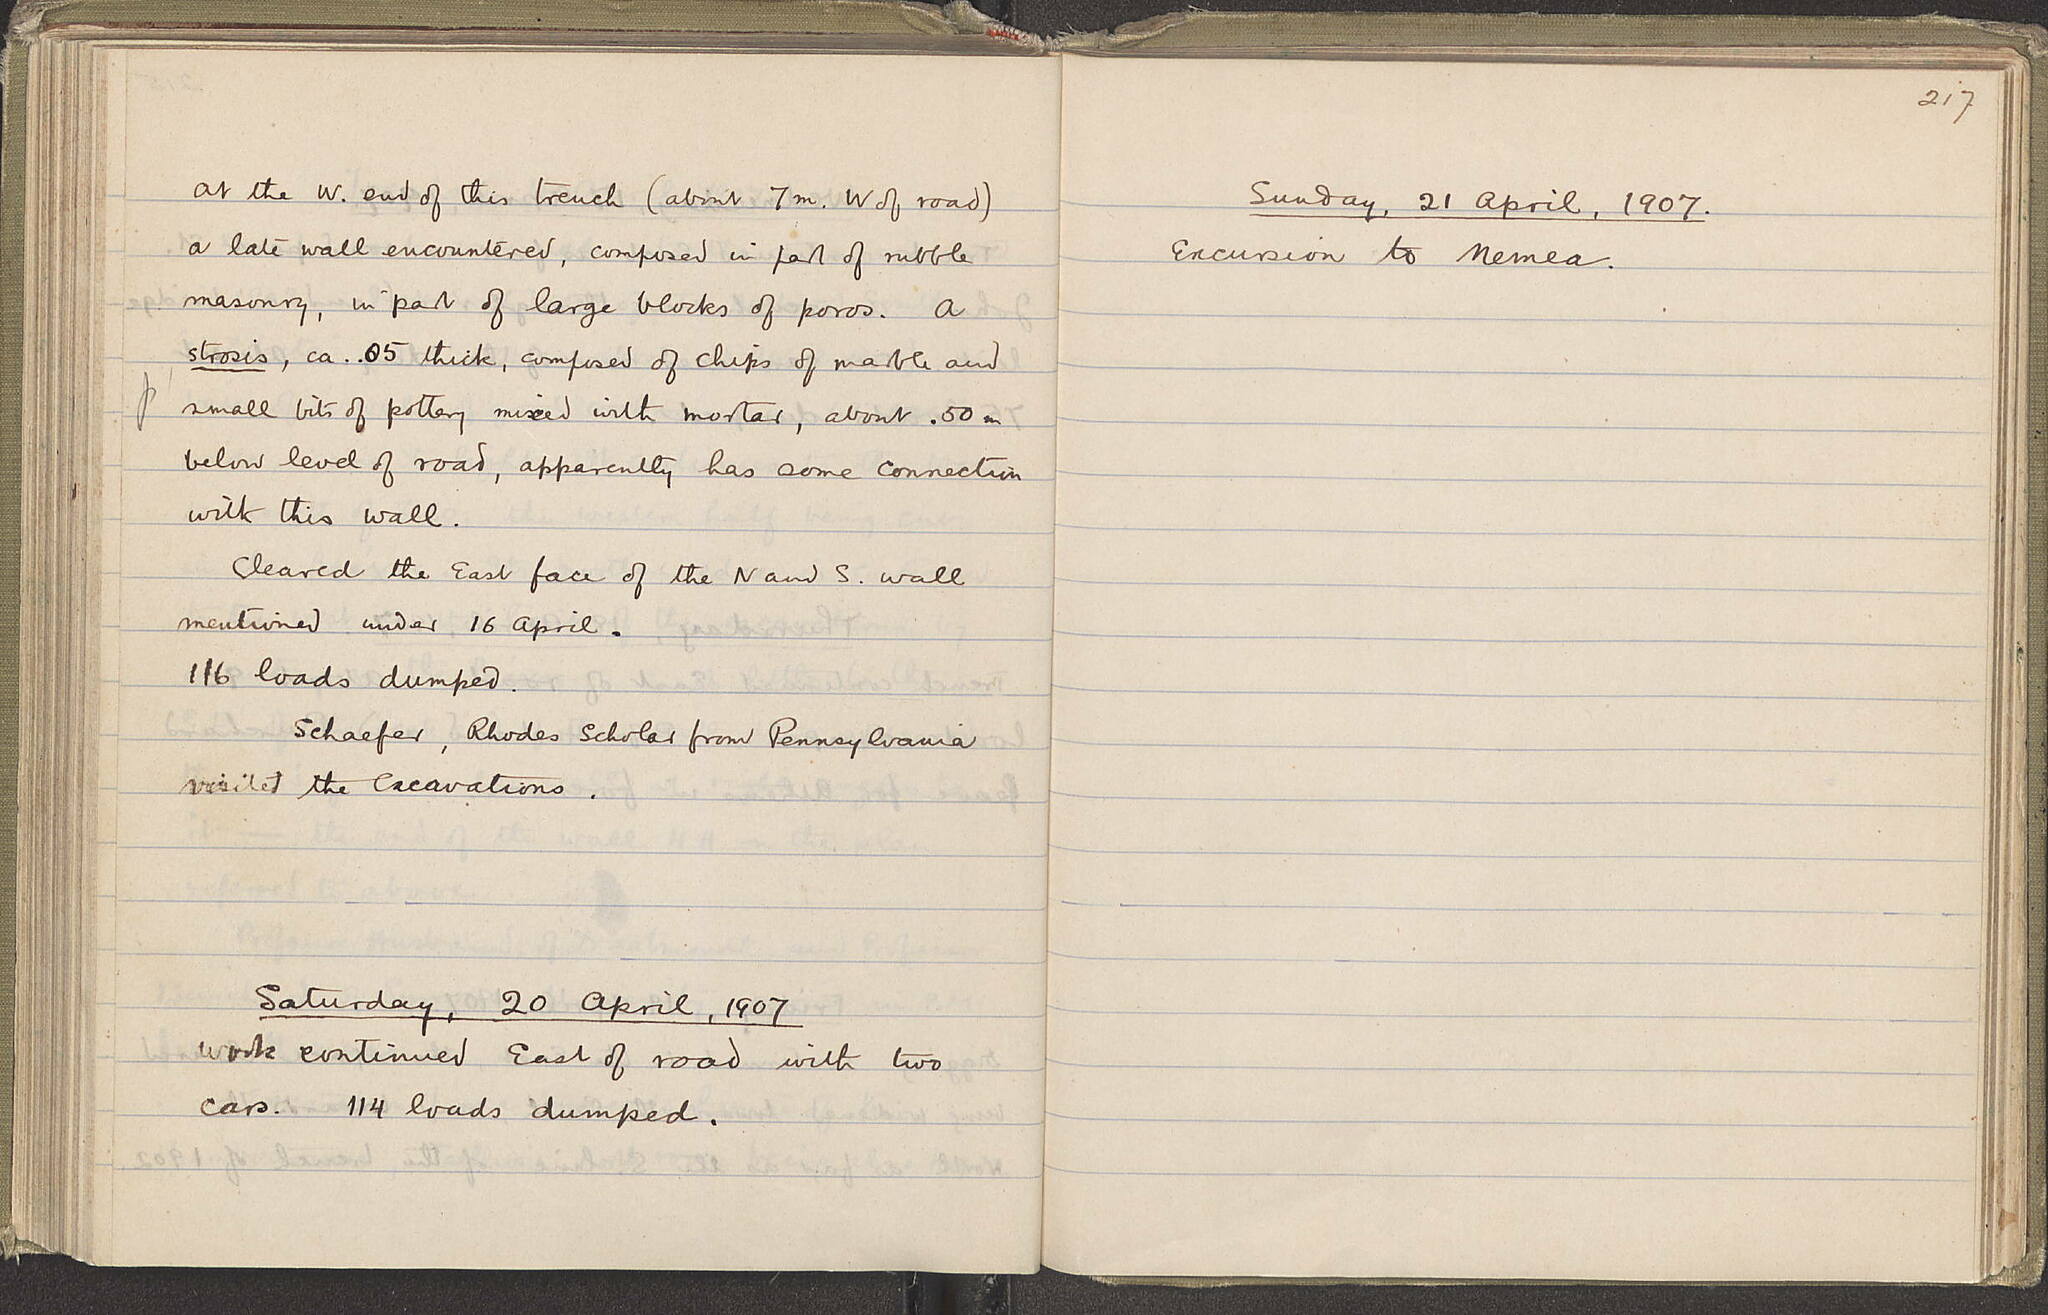 at the W. end of this trench (about 7 m. W of road)
a late wall encountered, composed in part of rubble
masonry, in part of large blocks of poros. A
strosis, ca. .05 thick, composed of chips of marble and
small bits of pottery mixed with mortar, about .50 m
below level of road, apparently has some connection
with this wall.
Cleared the East face of the N and S. wall
mentioned under 16 April.
116 loads dumped.
Schaefer, Rhodes Scholar from Pennsylvania
visited the Excavations.
Saturday, 20 April, 1907
Work continued East of road with two
cars. 114 loads dumped.
217
Sunday, 21 April, 1907.
Excursion to Nemea.